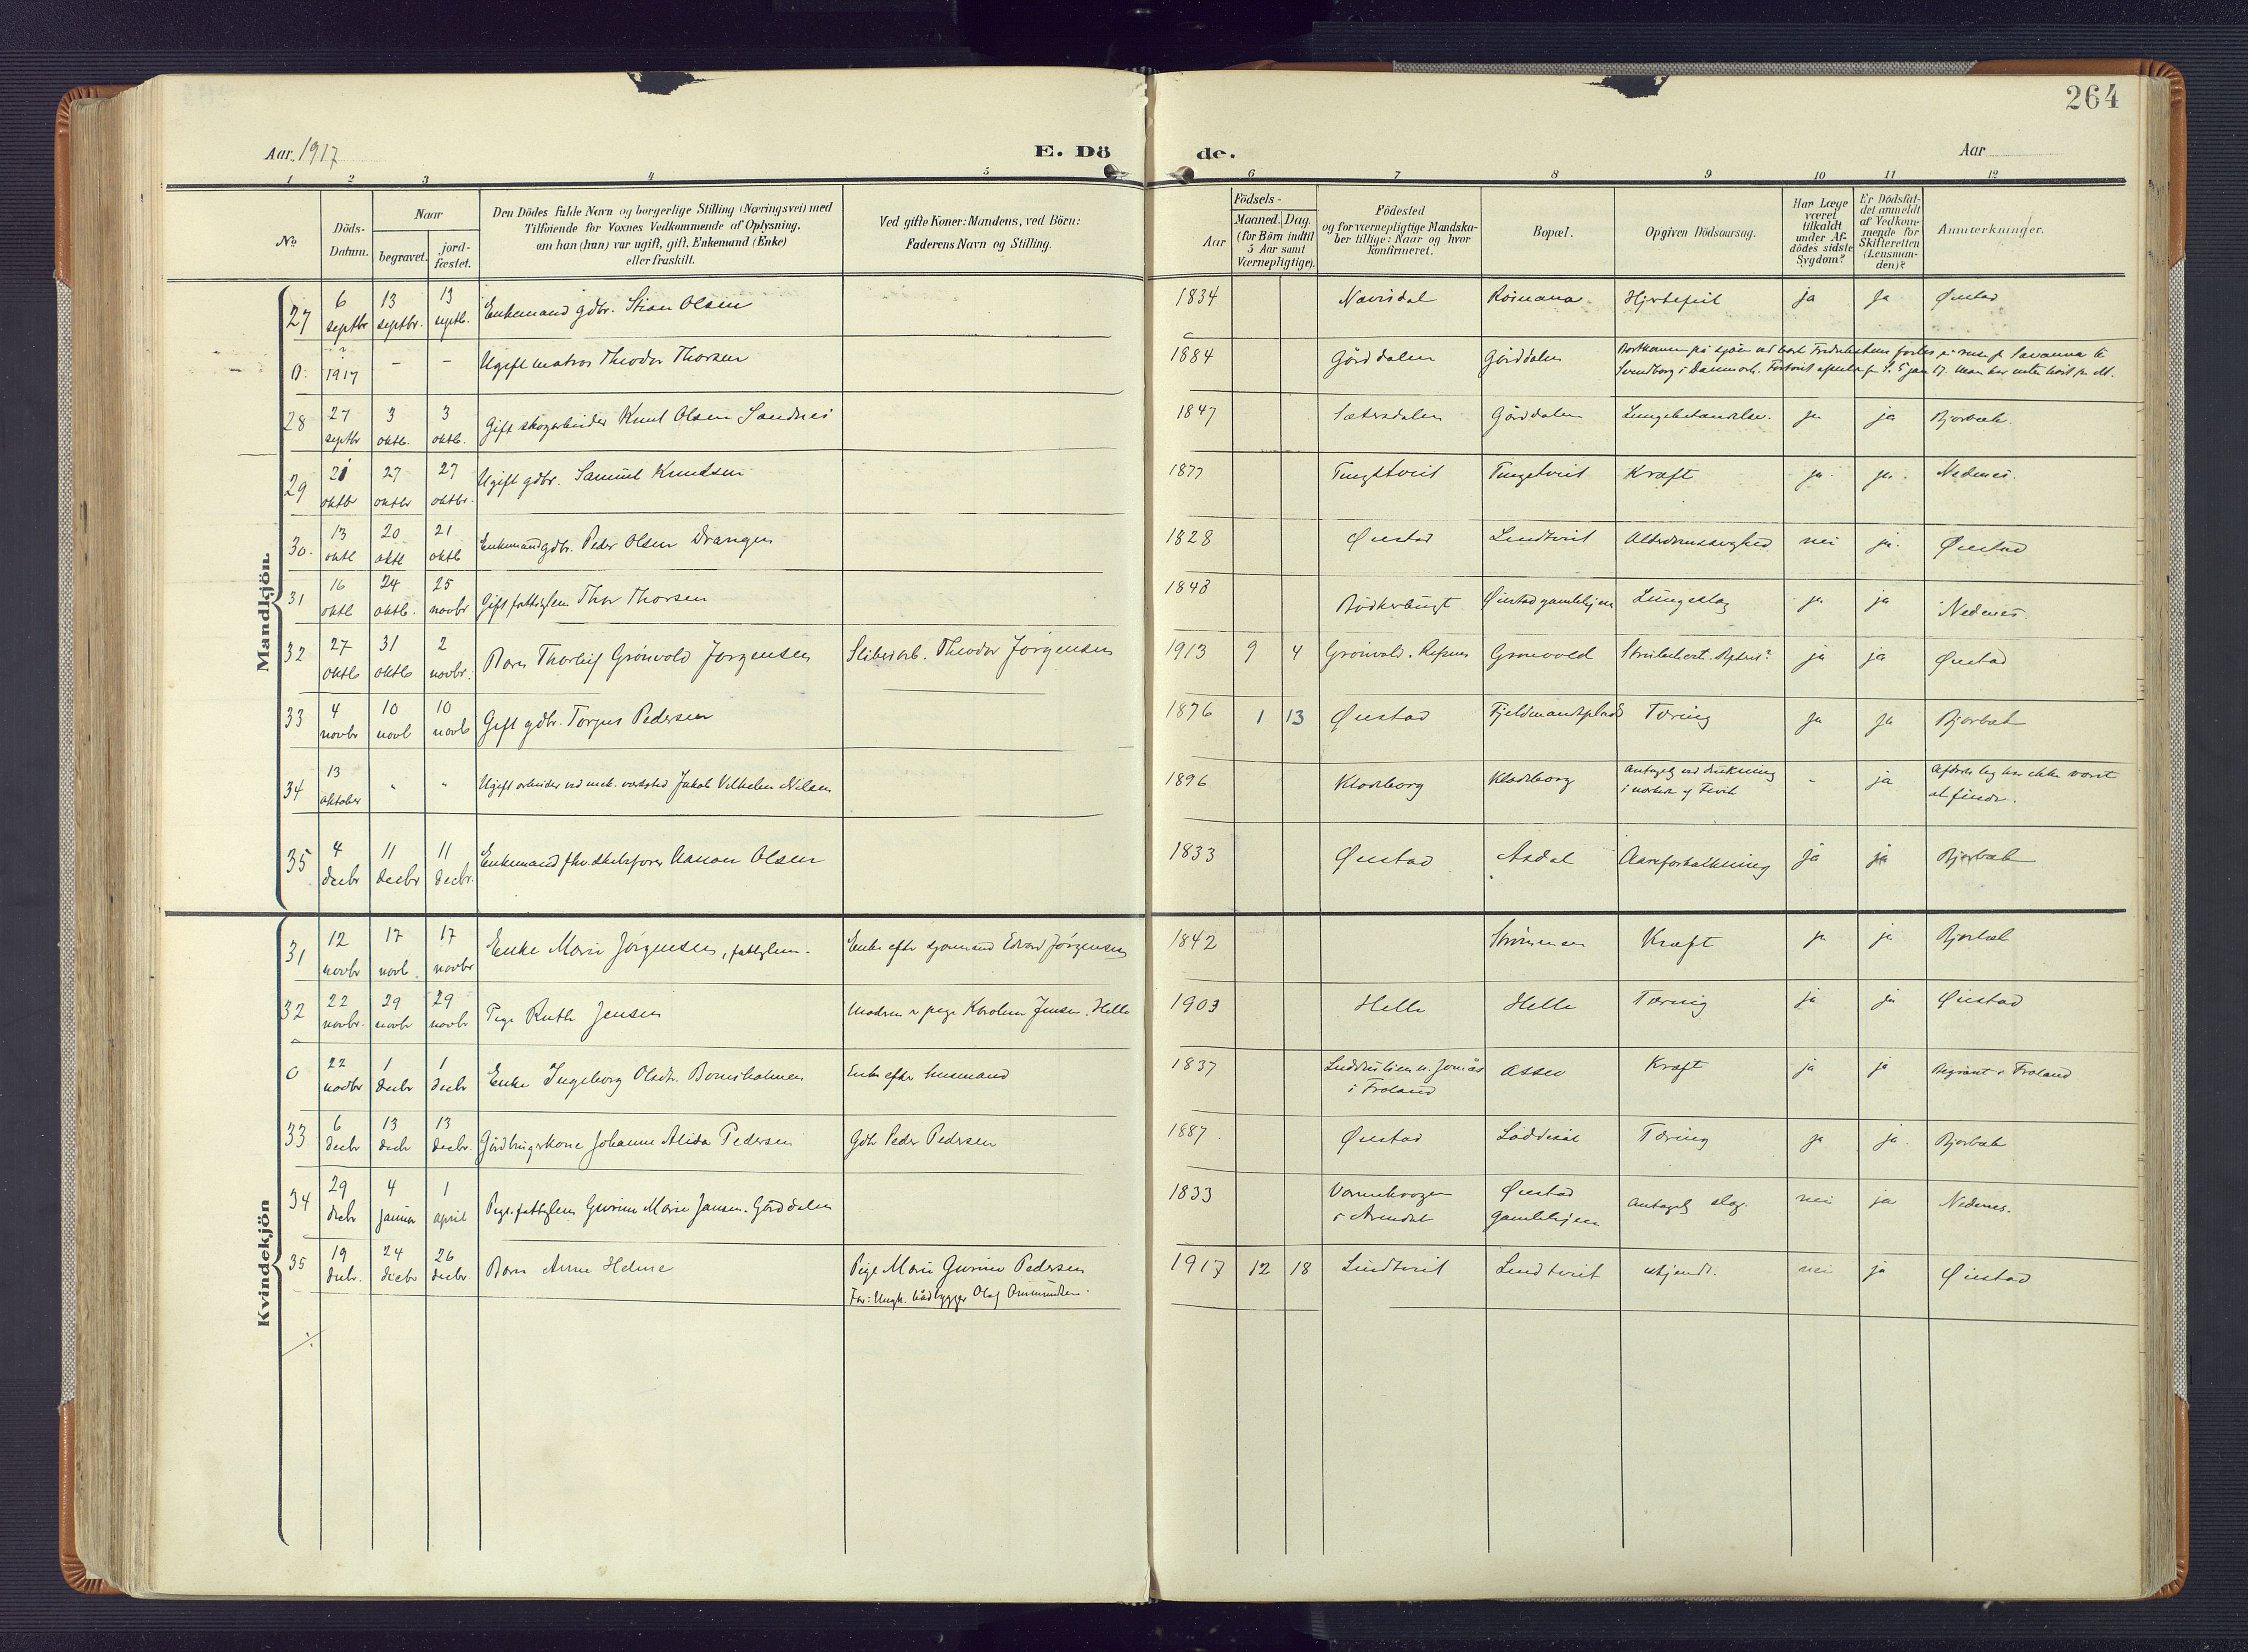 264
Aar 1917 E. Dö de. Aar
1 2 3 4 5 6 7 8 9 10 11 12
No
Döds-Datum.
Naar begravet. jord-fæstet.
Den Dödes fulde Navn og borgerlige Stilling (Næringsvei) med
Tilföiende for Voxnes Vedkommende af Oplysning,
om han (hun) var ugift, gift, Enkemand (Enke)
eller fraskilt.
Ved gifte Koner: Mandens, ved Börn:
Faderens Navn og Stilling.
Födsels-
Aar Maaned. Dag.
(for Börn indtil
5 Aar samt
Værnepligtige).
Födested
og for værnepligtige Mandska-
ber tillige: Naar og hvor
konfirmeret.
Bopæl.
Opgiven Dödsaarsag.
Har Læge
været
tilkaldt
under Af-
dödes sidste
Sygdom?
Er Dödsfal-
det anmeldt
af Vedkom-
mende for
Skifteretten
(Lensman-
den)?
Anmærkninger.
Mandkjön.
27 6 septbr 13 septbr. 13 septb. Enkemand gdbr. Stian Olsen 1834 Navisdal Hjertefeil ja ja Øiestad
0. ? 1917 – – Ugift matros Theodor Thorsen 1884 Gårddalen Gårddalen
28 27 septbr 3 oktb. 3 oktb. Gift skogarbeider Knut Olsen Sandnes 1847 Sætersdalen Gårddalen Lungebetændelse. ja ja Bjorbæk.
29 21 oktbr 27 oktbr 27 oktbr. Ugift gdbr. Samuel Knudsen 1877 Tingstveit Tingstveit Kræft ja ja. Nedenes.
30. 13 oktb 20 oktb 21 oktb Enkemand gdbr. Peder Olsen Drangen 1828 Øiestad Lindtveit Alderdomssvaghed nei ja. Øiestad
31 16 oktb 24 oktb. 25 novbr Gift fattiglem Thor Thorsen 1843 Bödkerbugt Øiestad gamlehjem Lungeslag ja ja Nedenes.
32 27 oktb 31 oktb 2 novbr. Barn Thorleif Grönvold Jörgensen Sliberiarb. Theodor Jörgensen 1913 9 4 Grönvold. Grönvold ja ja Øiestad
33 4 novbr 10 novb 10 novb Gift gdbr. Torjus Pedersen 1876 1 13 Øiestad Fjeldmandsplads Tæring ja ja Bjorbæk
34 13 oktober " " Ugift arbeider ved mek. værksted Jakob Vilhelm Nilsen 1896 Kladeborg Kladeborg Antagelig ved drukning - ja Afdödes lig har ikke været
at finde.
35 4 decbr 11 decbr 11 decbr. Enkemand fhv. skibsförer Aanon Olsen 1833 Øiestad Asdal Aareforkalkning ja ja Bjorbæk
Kvindekjön
31 12 novbr 17 novb. 17 novbr Enke Marie Jörgensen, fattiglem. Enke efter sjömand Edvard Jörgensen 1842 Strömmen Kræft ja ja Bjorbæk
32 22 novbr. 29 novbr 29 novbr Pige Ruth Jensen Moderen er pige Karoline Jensen. Helle 1903 Helle Helle Tæring ja ja Øiestad
0 22 novbr 1 decbr 1 decbr Enke Ingeborg Olsdtr. Enke efter husmand 1837 i Froland Assev Kræft ja ja Begravet i Froland
33 6 decbr 13 decbr 13 decbr. Gårdbrugerkone Johanne Alida Pedersen Gdbr Peder Pedersen 1887. Øiestad Löddesöl Tæring ja ja. Bjorbæk
34 29 decbr 4 januar 1 april Pige, fattiglem Gurine Marie Jansen. Gårddalen 1833 i Arendal Øiestad Gamlehjem Antagelig slag. nei ja Nedenes.
35 19 decbr. 24 decbr 26 decbr. Barn Anne Helene Pige Marie Gurine Pedersen 1917 12 18 Lindtveit Lindtveit ukjendt. nei ja Øiestad
Far: Ungk. bådbygger Olaf Ommundsen.